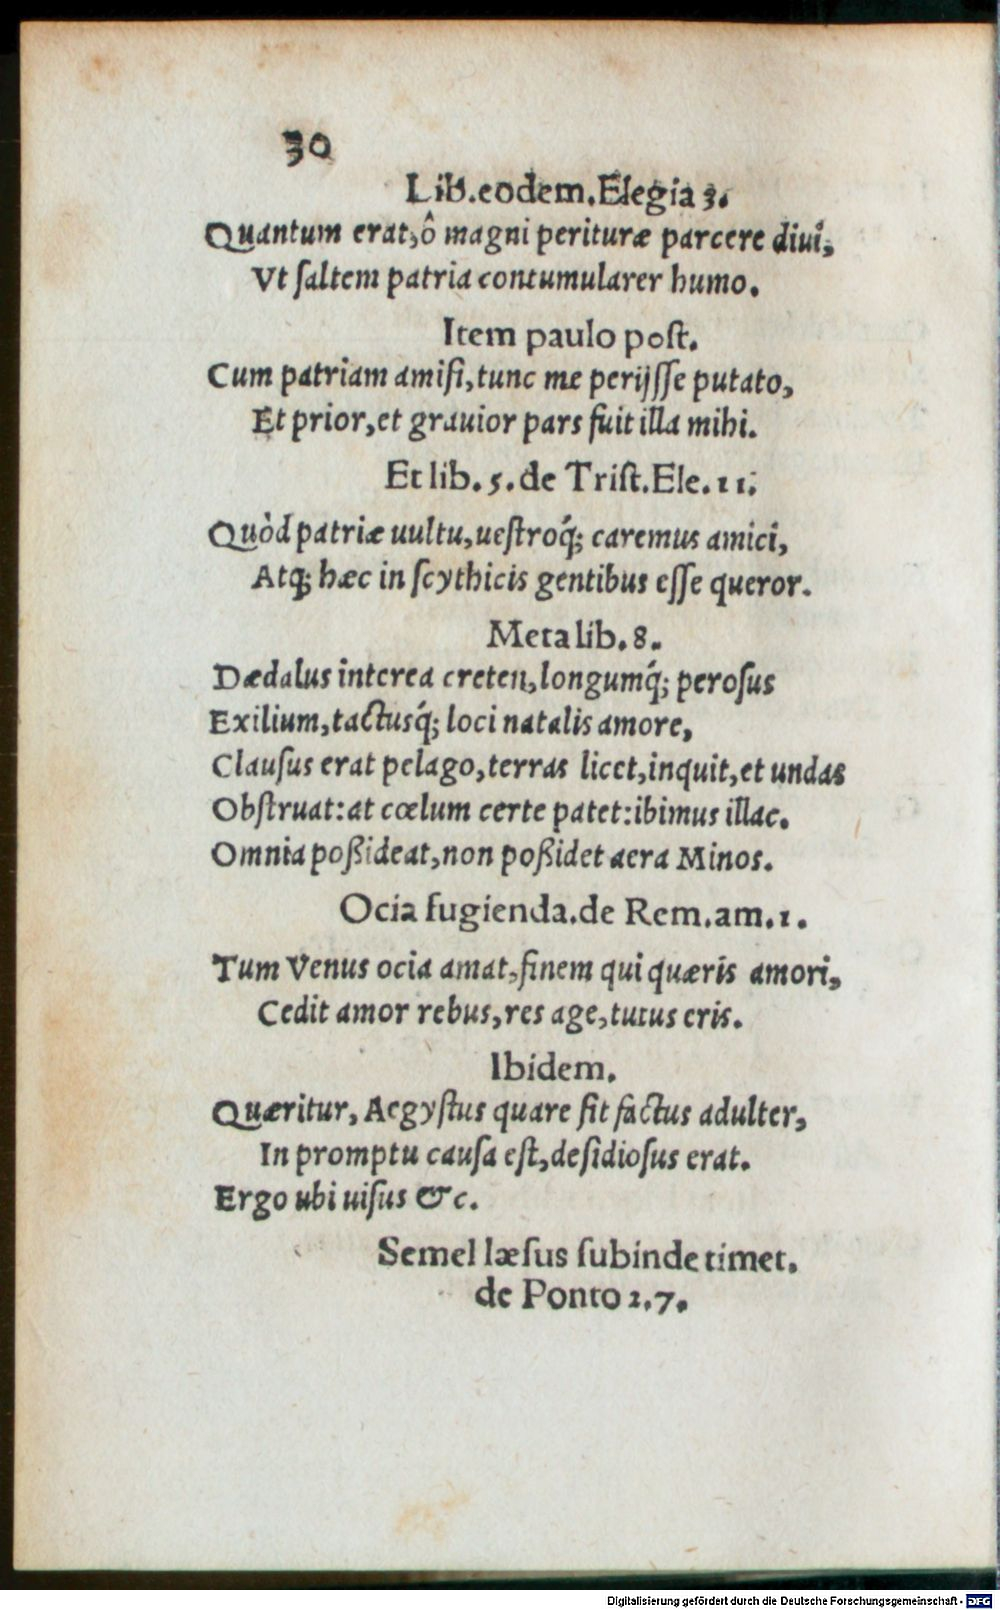 30
Lib.eodem.Elegia 3.
Quantum erat,ô magni perituræ parcere diui,
Vt ſaltem patria contumularer humo.
Item paulo poſt.
Cum patriam amiſi,tunc me perijſſe putato,
Et prior,et grauior pars fuit illa mihi.
Et lib.5.de Triſt.Ele.11.
Quòd patriæ uultu,ueſtroq́; caremus amici,
Atq; hæc in ſcythicis gentibus eſſe queror.
Meta lib.8.
Dædalus interea creten,longumq́; peroſus
Exilium,tactusq́; loci natalis amore,
Clauſus erat pelago,terras licet,inquit,et undas
Obſtruat:at cœlum certe patet:ibimus illac.
Omnia poßideat,non poßidet aera Minos.
Ocia fugienda.de Rem.am.1.
Tum Venus ocia amat,finem qui quæris amori,
Cedit amor rebus,res age,tutus eris.
Ibidem.
Quæritur, Aegyſtus quare ſit factus adulter,
In promptu cauſa eſt,deſidioſus erat.
Ergo ubi uiſus &c.
Semel læſus ſubinde timet.
de Ponto 2.7.
Digitalisierung gefördert durch die Deutsche Forschungsgemeinschaft - DFG